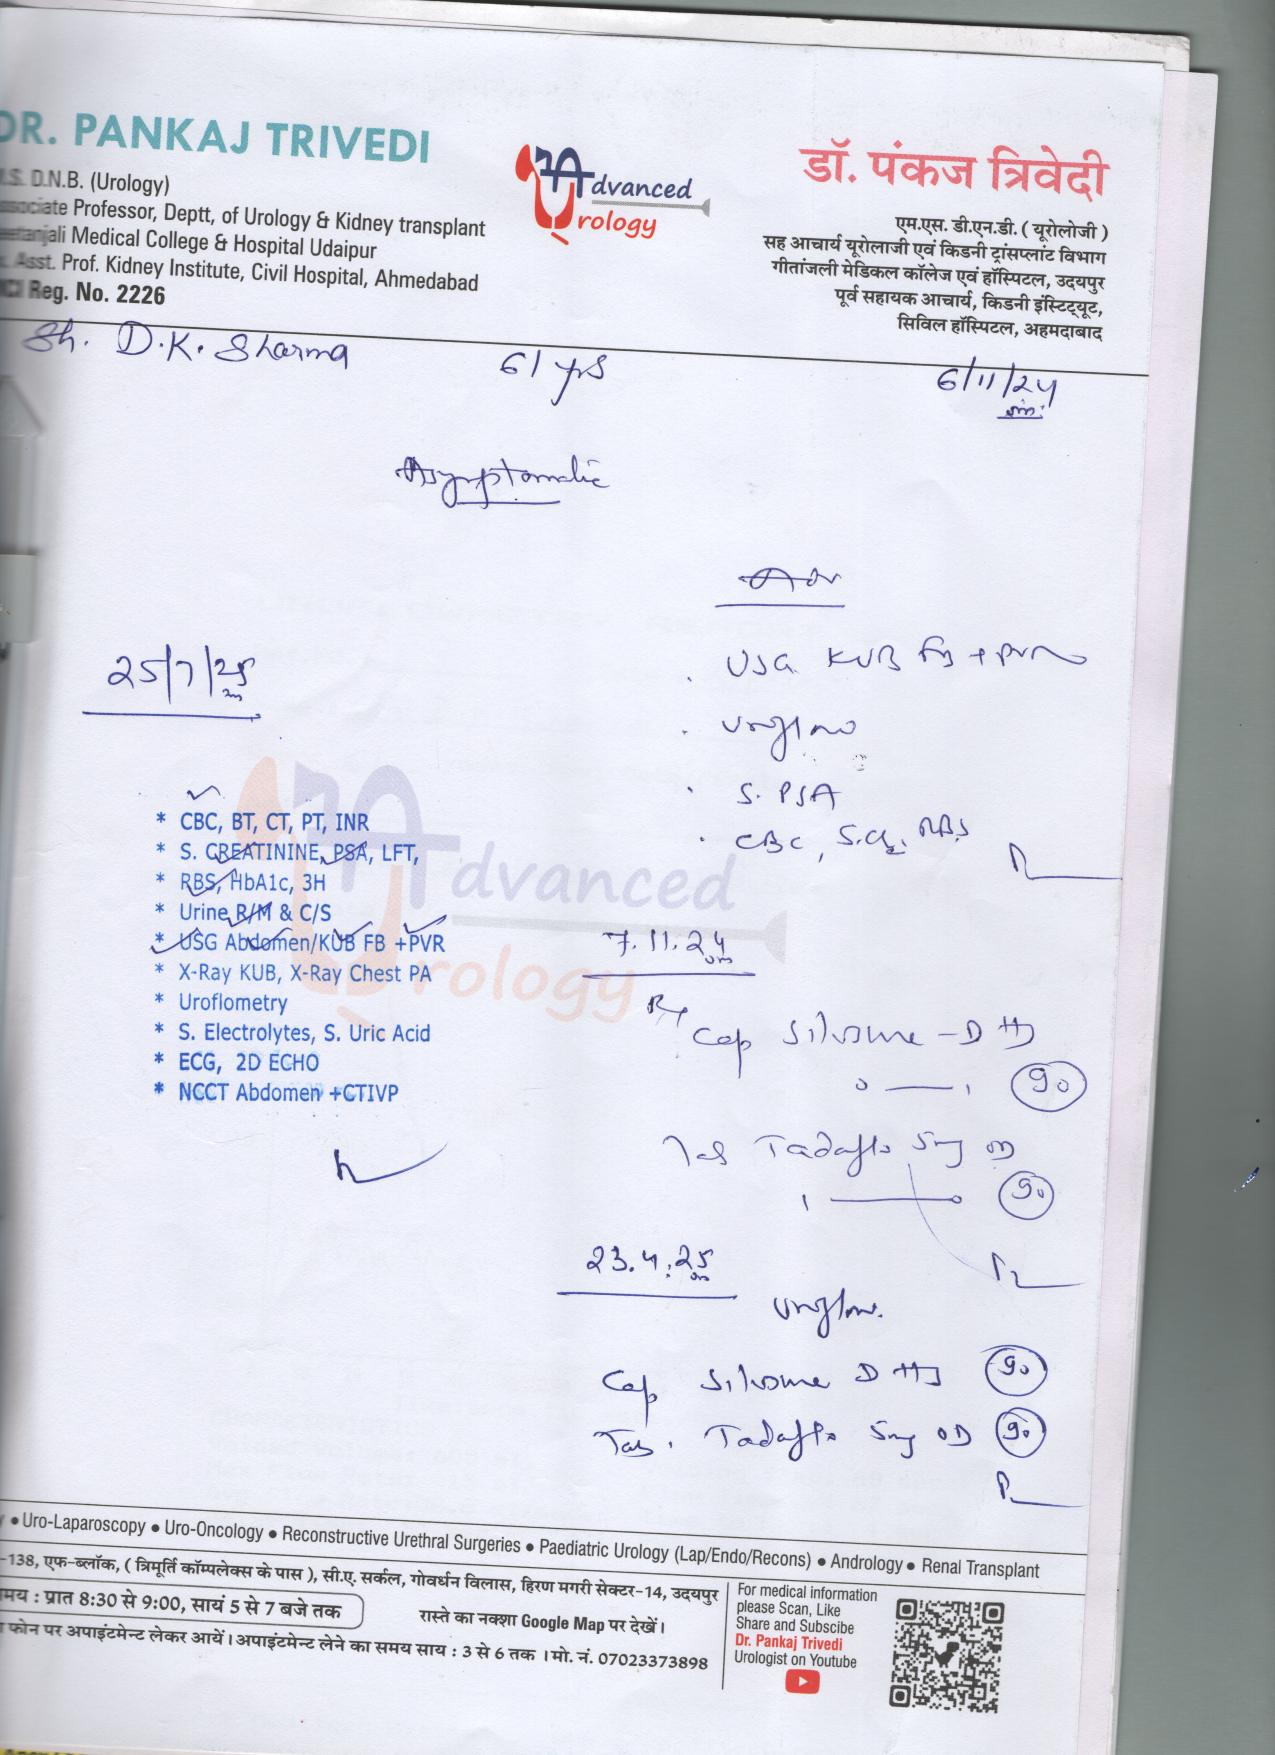 DR. PANKAJ TRIVEDI
.S. D.N.B. (Urology)
ssociate Professor, Deptt, of Urology & Kidney transplant
eetanjali Medical College & Hospital Udaipur
Asst. Prof. Kidney Institute, Civil Hospital, Ahmedabad
Reg. No. 2226
Advanced
Urology
डॉ. पंकज त्रिवेदी
एम.एस. डी.एन.डी. ( यूरोलोजी )
सह आचार्य यूरोलाजी एवं किडनी ट्रांसप्लांट विभाग
गीतांजली मेडिकल कॉलेज एवं हॉस्पिटल, उदयपुर
पूर्व सहायक आचार्य, किडनी इंस्टिट्यूट,
सिविल हॉस्पिटल, अहमदाबाद
Sh. D.K. Sharma 61 yrs 6/11/24
Asymptomatic
Adv
USG KUB FB + PVR
Uroflow
S. PSA
CBC, S.Cr, RBS
25/7/25
* CBC, BT, CT, PT, INR
* S. CREATININE, PSA, LFT,
* RBS, HbA1c, 3H
* Urine R/M & C/S
* USG Abdomen/KUB FB +PVR
* X-Ray KUB, X-Ray Chest PA
* Uroflometry
* S. Electrolytes, S. Uric Acid
* ECG, 2D ECHO
* NCCT Abdomen +CTIVP
Advanced
Urology
7.11.24
Rx Cap Silvsme - D HS
0 — 1 90
Tab Tadaflo 5mg OD
1 — 0 90
23.4.25
Uroflow.
Cap Silvsme D HS 90
Tab. Tadaflo 5mg OD 90
• Uro-Laparoscopy • Uro-Oncology • Reconstructive Urethral Surgeries • Paediatric Urology (Lap/Endo/Recons) • Andrology • Renal Transplant
-138, एफ-ब्लॉक, ( त्रिमूर्ति कॉम्पलेक्स के पास ), सी.ए. सर्कल, गोवर्धन विलास, हिरण मगरी सेक्टर-14, उदयपुर
मय : प्रात 8:30 से 9:00, सायं 5 से 7 बजे तक
रास्ते का नक्शा Google Map पर देखें।
फोन पर अपाइंटमेन्ट लेकर आयें। अपाइंटमेन्ट लेने का समय साय : 3 से 6 तक । मो. नं. 07023373898
For medical information
please Scan, Like
Share and Subscibe
Dr. Pankaj Trivedi
Urologist on Youtube